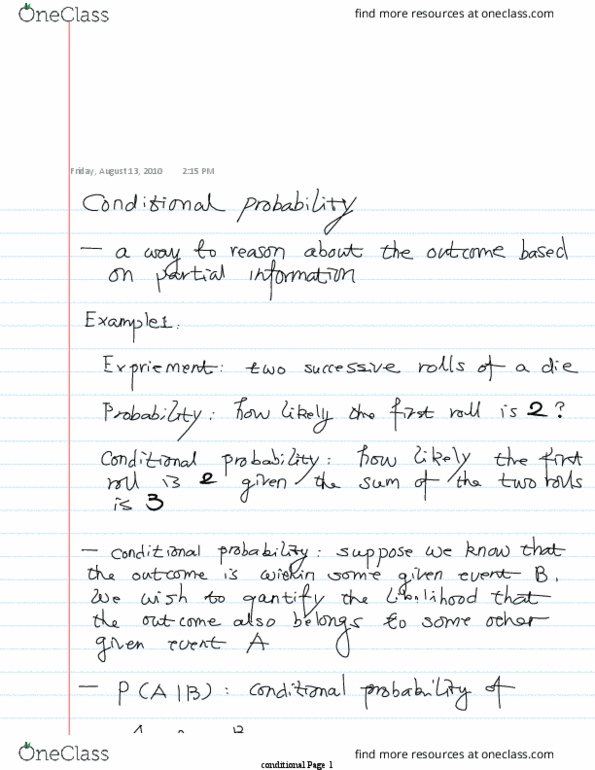 OneClass
find more resources at oneclass.com
Friday, August 13, 2010 2:15 PM
Conditional probability
— a way to reason about the outcome based
on partial information
Example1:
Expriement: two successive rolls of a die
Probability: how likely the first roll is 2?
Conditional probability: how likely the first
roll is 2 given the sum of the two rolls
is 3
— conditional probability: suppose we know that
the outcome is within some given event B.
We wish to qantify the likelihood that
the outcome also belongs to some other
given event A
— P(A|B): conditional probability of
OneClass
find more resources at oneclass.com
conditional Page 1